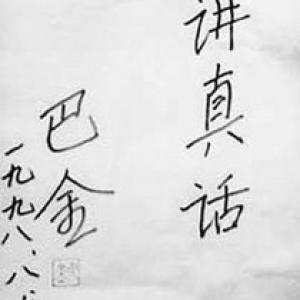 讲真话
巴金
一九九八.八.